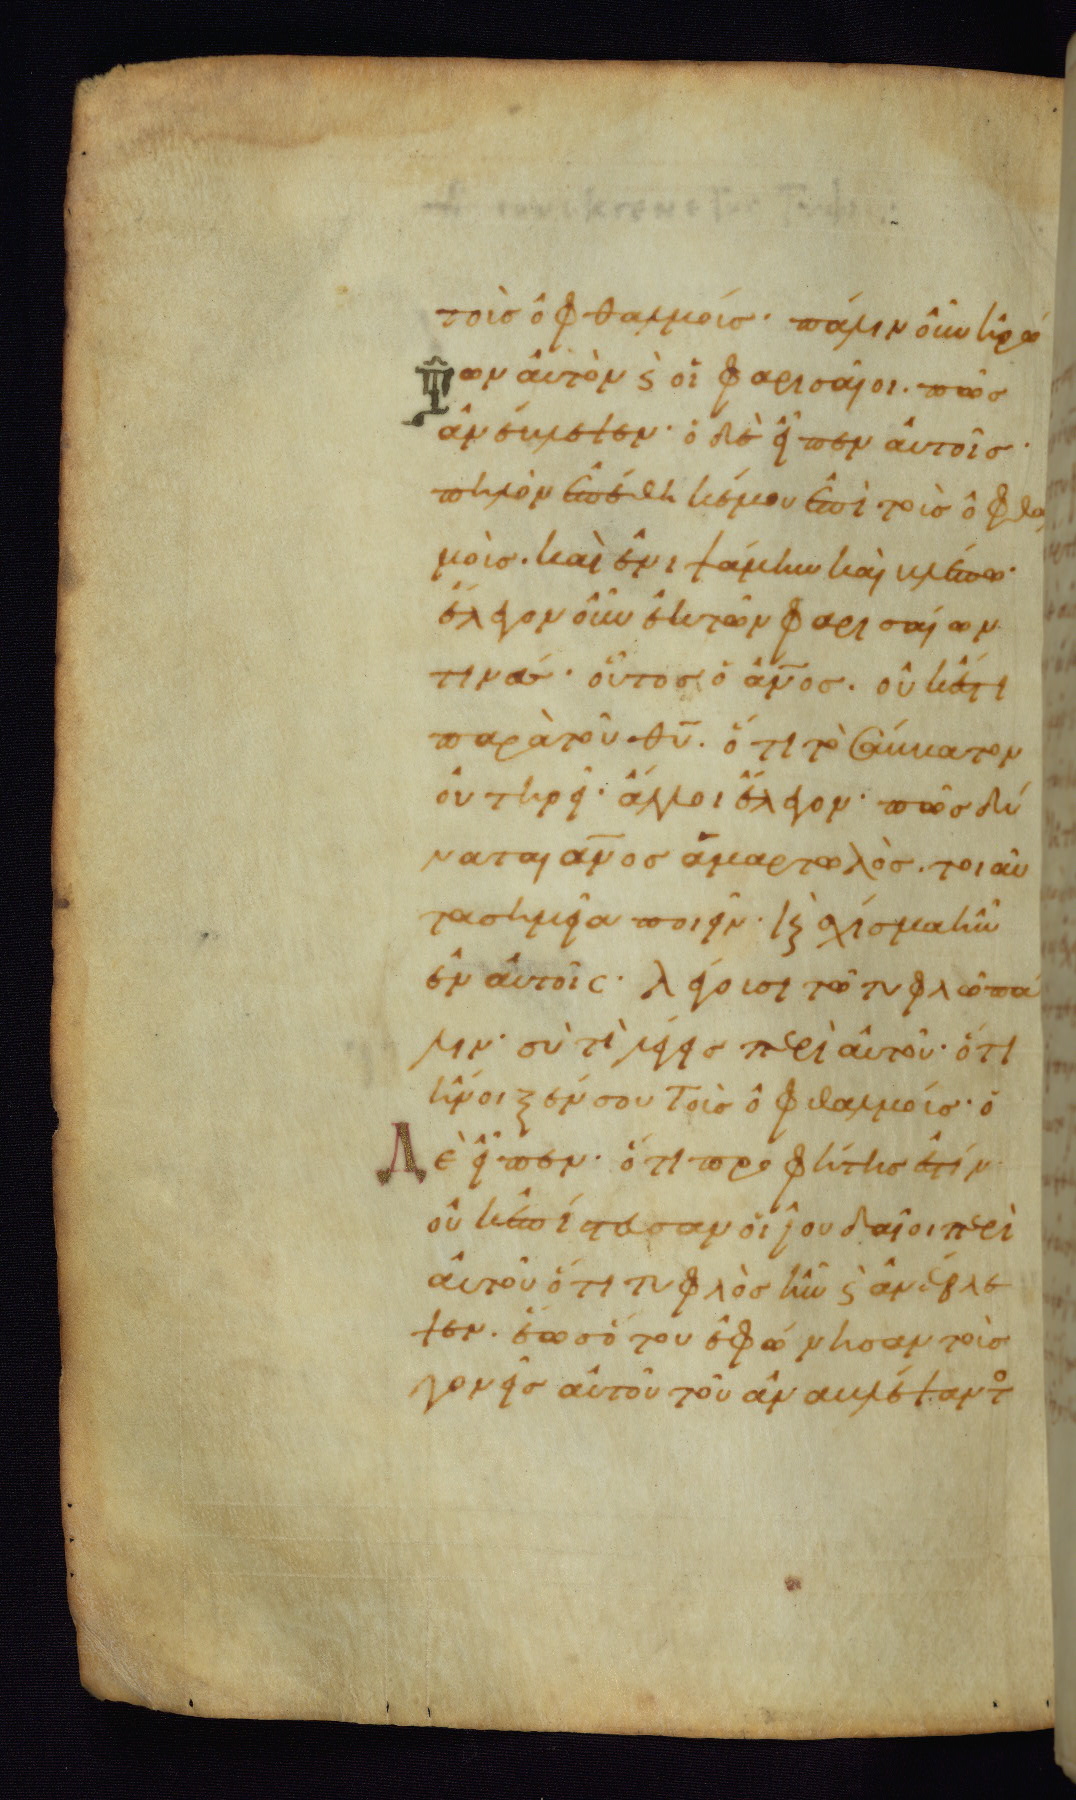 τοὺς ὀφθαλμούς· πάλιν οὖν ἠρώ
των αὐτὸν ϛ οἱ φαρισαῖοι. πῶς
ἀνέβλεψεν· ὁ δὲ εἶπεν αὐτοῖς·
πηλὸν ἐπέθηκέ μου ἐπὶ τοὺς ὀφθαλ
μοὺς. καὶ ἐνιψάμην καὶ βλέπω·
ἔλεγον οὖν ἐκ τῶν φαρισαίων
τινές· οὗτος ὁ ἄν̅ος. οὐκ ἔστι
παρὰ τοῦ θυ̅. ὅτι τὸ σάββατον
οὐ τηρεῖ· ἄλλοι ἔλεγον· πῶς δύ
ναται αν̅ος ἁμαρτωλὸς. τοιαῦ
τα σημεῖα ποιεῖν· κϛ σχίσμα ἦν
ἐν αὐτοῖς· λέγουσι τῶ τυφλῶ πά
λιν· σὺ τί λέγεις περὶ αὐτοῦ· ὅτι
ἤνοιξέν σου τοὺς ὀφθαλμούς· ὁ
Δὲ εἶπεν· ὅτι προφήτης ἐστίν·
οὐκ ἐπίστευσαν οἱ ἰουδαῖοι περὶ
αὐτοῦ ὅτι τυφλὸς ἦν ϛ ἀνέβλε
ψεν. ἕως ὅτου ἐφώνησαν τοὺς
γονεῖς αὐτοῦ τοῦ ἀναβλέψαντο